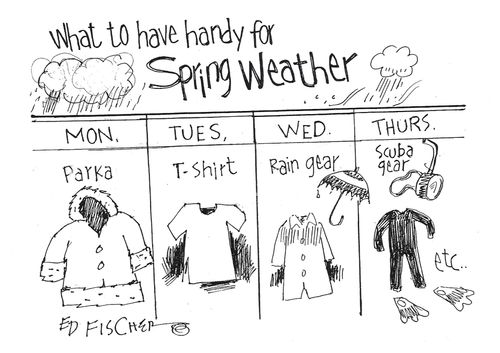 What to have handy for
Spring Weather
MON. TUES, WED. THURS.
Parka T-Shirt Rain gear Scuba gear
etc..
ED FISCHER